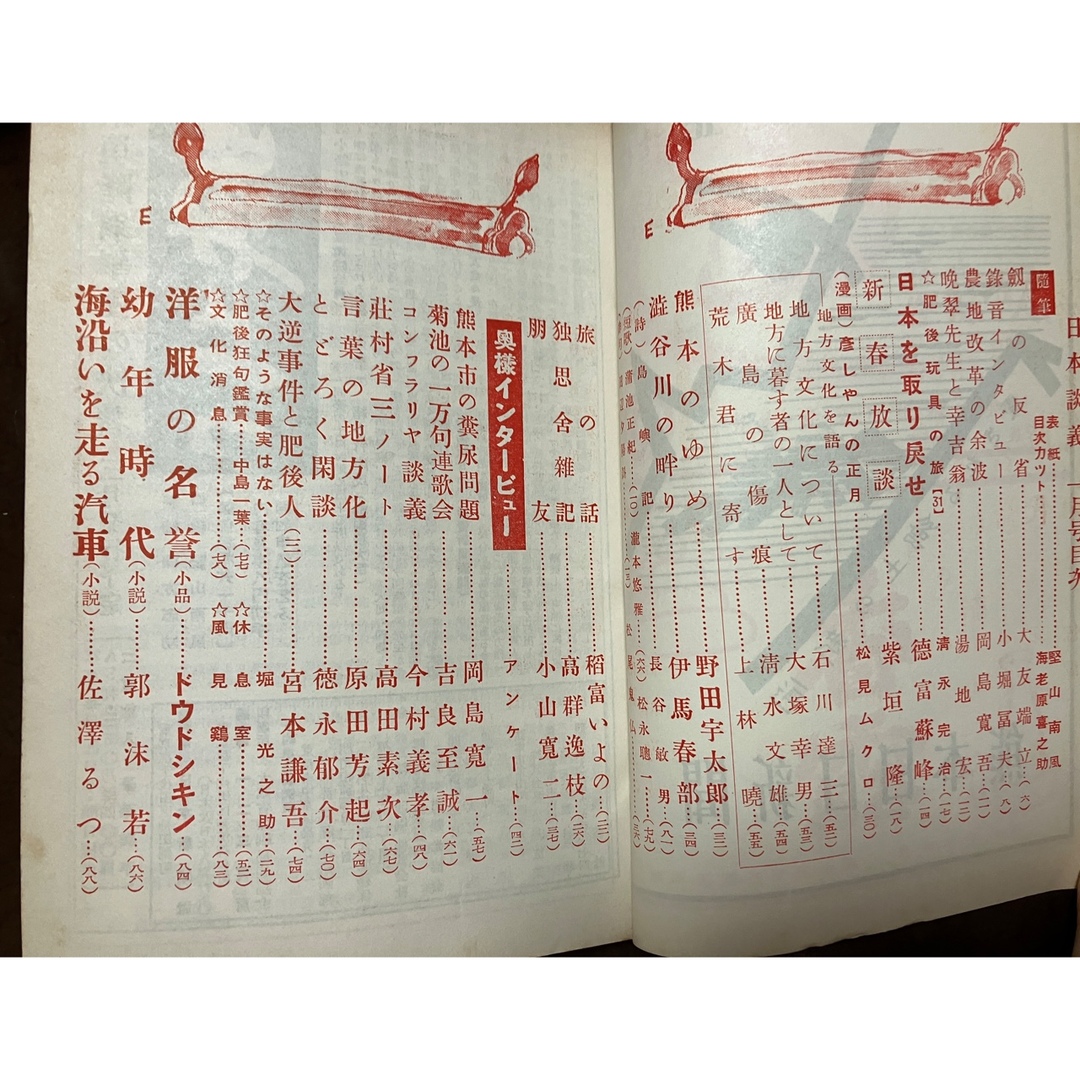 日本談義 一月号目次
表紙……堅山南風
目次カット……海老原喜之助
隨筆
劔の反省……大友端立…(六)
錄音インタビュー……小堀冨夫…(八)
農地改革の余波……岡島寛吾…(一一)
晩翠先生と幸吉翁……湯地宏…(一五)
☆肥後玩具の旅【31】……清永完治…(一七)
日本を取り戾せ……德富蘇峰…(一四)
新春放談……紫垣隆…(一八)
(漫画)彥しやんの正月……松見ムクロ…(三〇)
地方文化を語る
地方文化について……石川達三…(五二)
地方に暮す者の一人として……大塚幸男…(五三)
廣島の傷痕……清水文雄…(五四)
荒木君に寄す……上林曉…(五五)
熊本のゆめ……野田宇太郎…(三二)
澁谷川の畔り……伊馬春部…(三四)
(詩)島嶼記……長谷敏男…(八一)
(短歌)蒲池正紀…(一〇) 瀧本悠雅…(六六) 松永聰一…(七九)
旅の話……稻富いよの…(二二)
独思舍雜記……高群逸枝…(二六)
朋友……小山寛二…(三七)
奥樣インタービュー……アンケート…(四二)
熊本市の糞尿問題……岡島寛一…(五七)
菊池の一万句連歌会……吉良至誠…(六一)
コンフラリヤ談義……今村義孝…(四八)
莊村省三ノート……高田素次…(六七)
言葉の地方化……原田芳起…(六四)
とどろく閑談……徳永郁介…(七〇)
大逆事件と肥後人(二)……宮本謙吾…(七四)
☆そのような事実はない……堀光之助…(二九)
☆肥後狂句鑑賞……中島一葉…(七七) ☆休息室……(五二)
☆文化消息……(七八) ☆風見鷄……(八三)
洋服の名誉(小品)……ドウドシキン…(八四)
幼年時代(小説)……郭沫若…(八六)
海沿いを走る汽車(小説)……佐澤るつ…(八八)
E
E